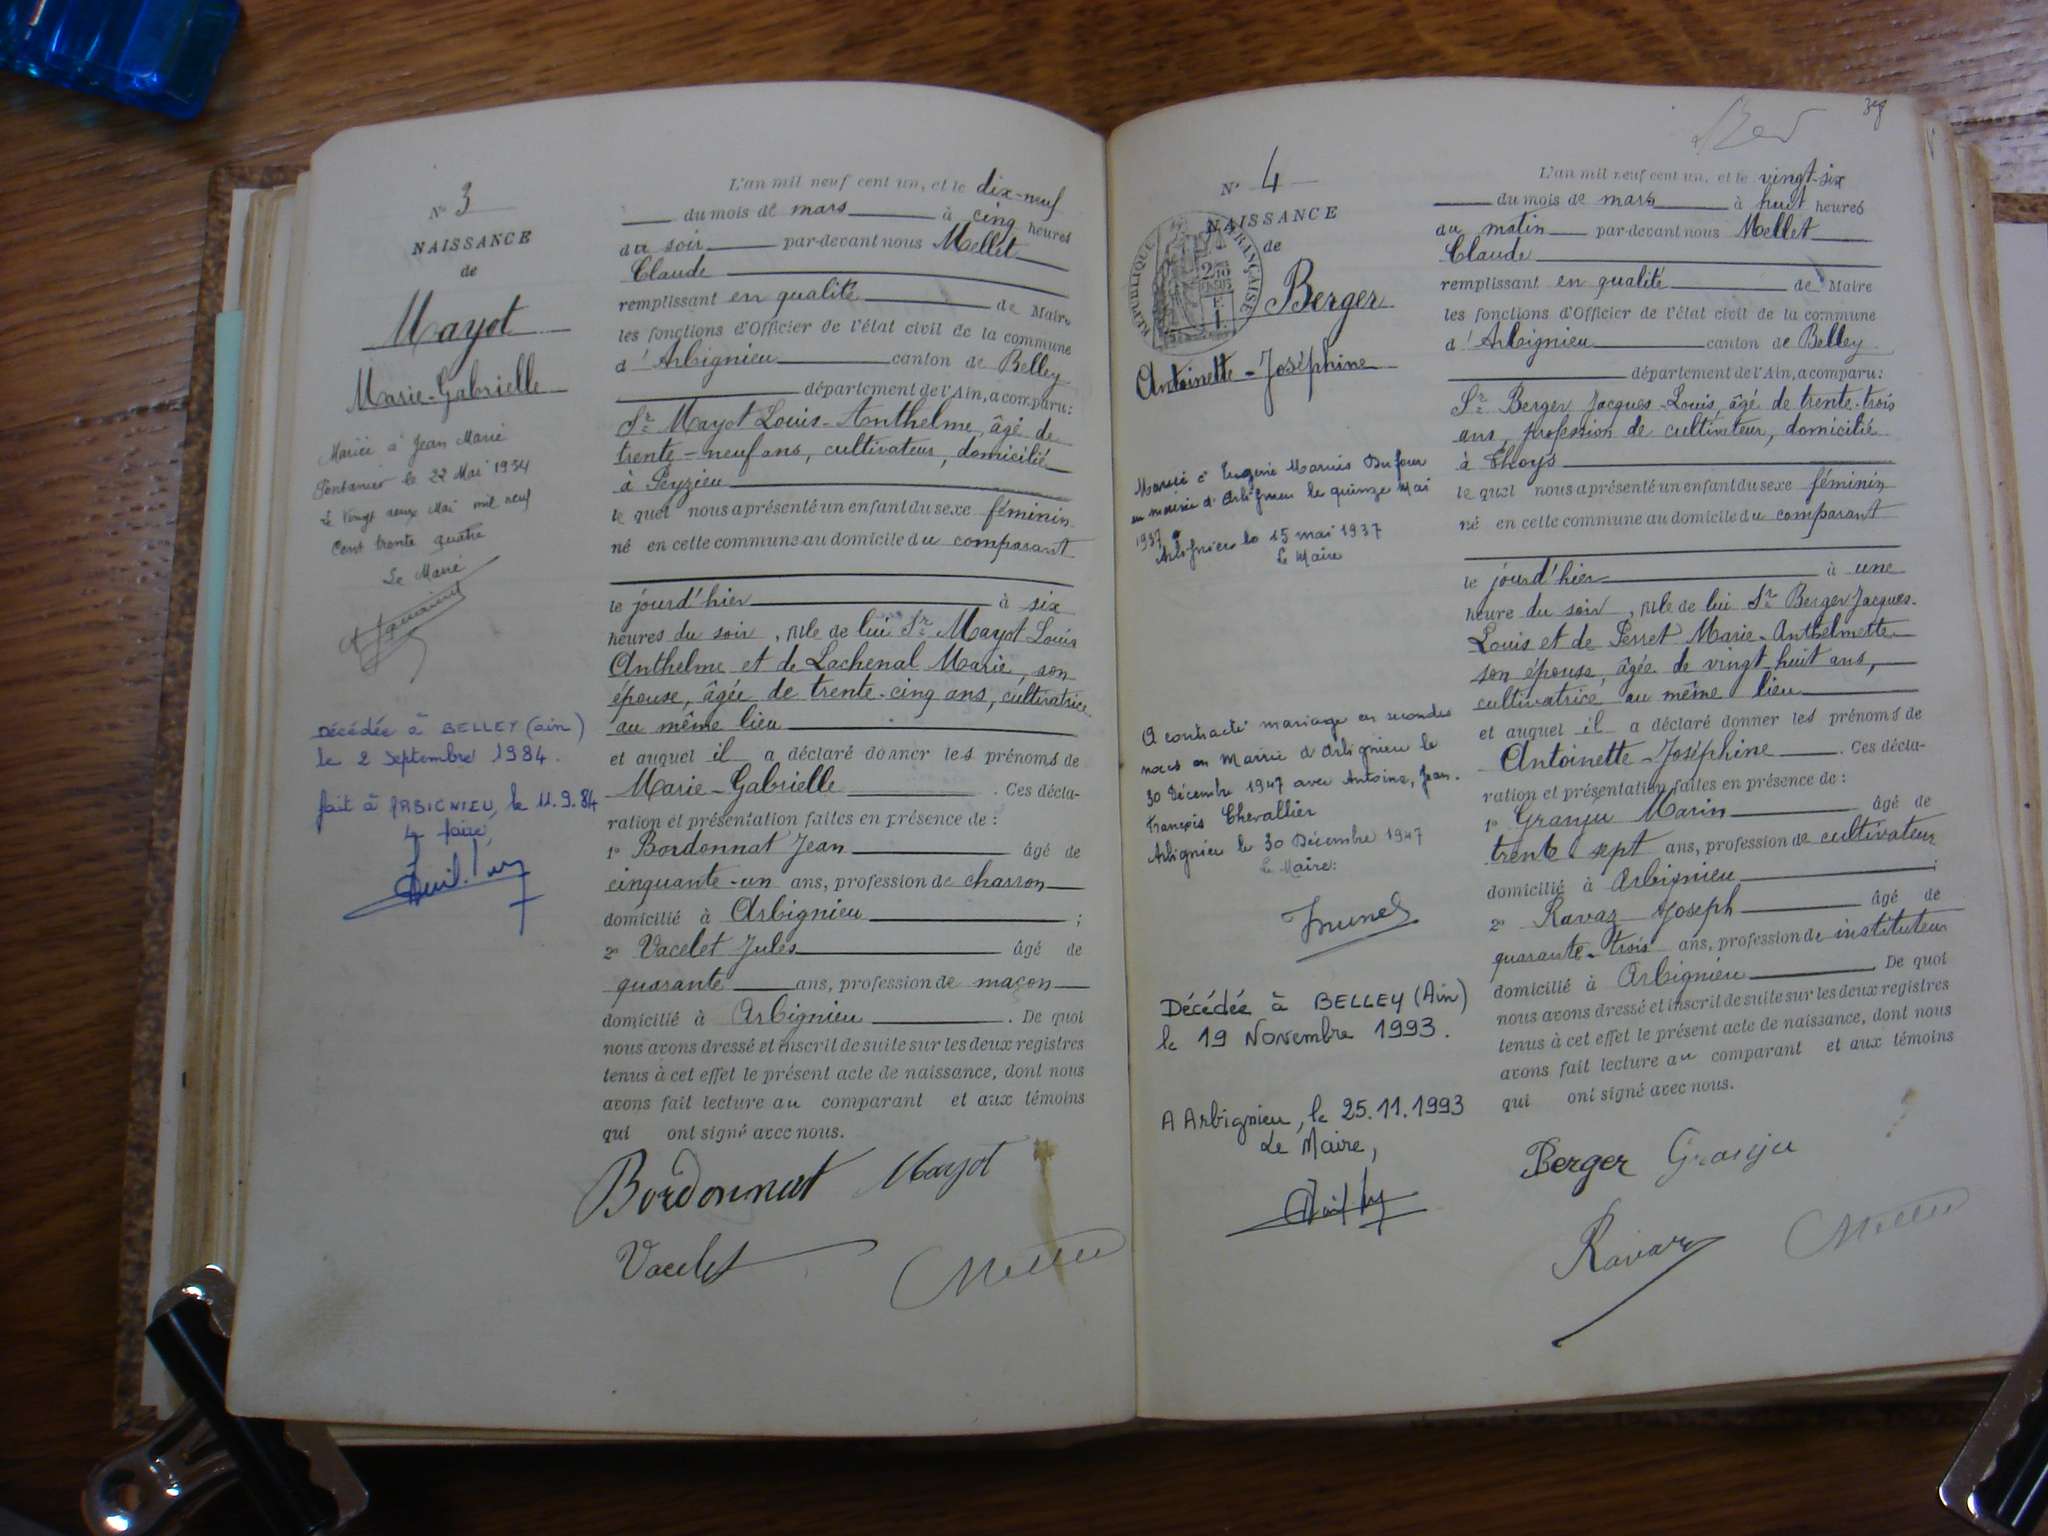 N° 3
NAISSANCE
de
Mayot
Marie-Gabrielle
Mariée à Jean Marie
le 22 Mai 1934
Le vingt deux Mai mil neuf
cent trente quatre
Le Maire
Décédée à BELLEY (ain)
le 2 Septembre 1984.
fait à ARBIGNIEU, le 11.9.84
L'an mil neuf cent un, et le dix-neuf
du mois de mars à cinq heures
du soir par-devant nous Mellet
Claude
remplissant en qualité de Maire
les fonctions d'Officier de l'état civil de la commune
d'Arbignieu canton de Belley
département de l'Ain, a comparu:
Sr Mayot Louis-Anthelme, âgé de
trente-neuf ans, cultivateur, domicilié
à Peyzieu
le quel nous a présenté un enfant du sexe féminin
né en cette commune au domicile du comparant
le jourd'hier à six
heures du soir, fille de lui Sr Mayot Louis
Anthelme et de Lachenal Marie, son
épouse, âgée de trente-cinq ans, cultivatrice
au même lieu
et auquel il a déclaré donner les prénoms de
Marie-Gabrielle. Ces décla-
ration et présentation faites en présence de :
1° Bordonnat Jean âgé de
cinquante-un ans, profession de charron
domicilié à Arbignieu ;
2° Vacelet Jules âgé de
quarante ans, profession de maçon
domicilié à Arbignieu. De quoi
nous avons dressé et inscrit de suite sur les deux registres
tenus à cet effet le présent acte de naissance, dont nous
avons fait lecture au comparant et aux témoins
qui ont signé avec nous.
Bordonnat Mayot
Vacelet Mellet
N° 4
NAISSANCE
de
RÉPUBLIQUE FRANÇAISE
Berger
Antoinette-Joséphine
Mariée à Eugène Marius Dufour
en mairie d'Arbignieu le quinze Mai
1937
Arbignieu le 15 mai 1937
Le Maire
A contracté mariage en secondes
noces en Mairie d'Arbignieu le
30 Décembre 1947 avec Antoine, Jean.
François Chevallier
Arbignieu le 30 Décembre 1947
Le Maire:
Décédée à BELLEY (Ain)
le 19 Novembre 1993.
A Arbignieu, le 25.11.1993
Le Maire,
L'an mil neuf cent un, et le vingt-six
du mois de mars à huit heures
du matin par-devant nous Mellet
Claude
remplissant en qualité de Maire
les fonctions d'Officier de l'état civil de la commune
d'Arbignieu canton de Belley
département de l'Ain, a comparu:
Sr Berger Jacques-Louis, âgé de trente-trois
ans, profession de cultivateur, domicilié
à Thoys
le quel nous a présenté un enfant du sexe féminin
né en cette commune au domicile du comparant
le jourd'hier à une
heure du soir, fille de lui Sr Berger Jacques-
Louis et de Perret Marie-Anthelmette
son épouse, âgée de vingt-huit ans,
cultivatrice au même lieu
et auquel il a déclaré donner les prénoms de
Antoinette-Joséphine. Ces décla-
ration et présentation faites en présence de :
1° Granju Marin âgé de
trente-sept ans, profession de cultivateur
domicilié à Arbignieu ;
2° Ravaz Joseph âgé de
quarante-trois ans, profession de instituteur
domicilié à Arbignieu. De quoi
nous avons dressé et inscrit de suite sur les deux registres
tenus à cet effet le présent acte de naissance, dont nous
avons fait lecture au comparant et aux témoins
qui ont signé avec nous.
Berger Granju
Ravaz Mellet